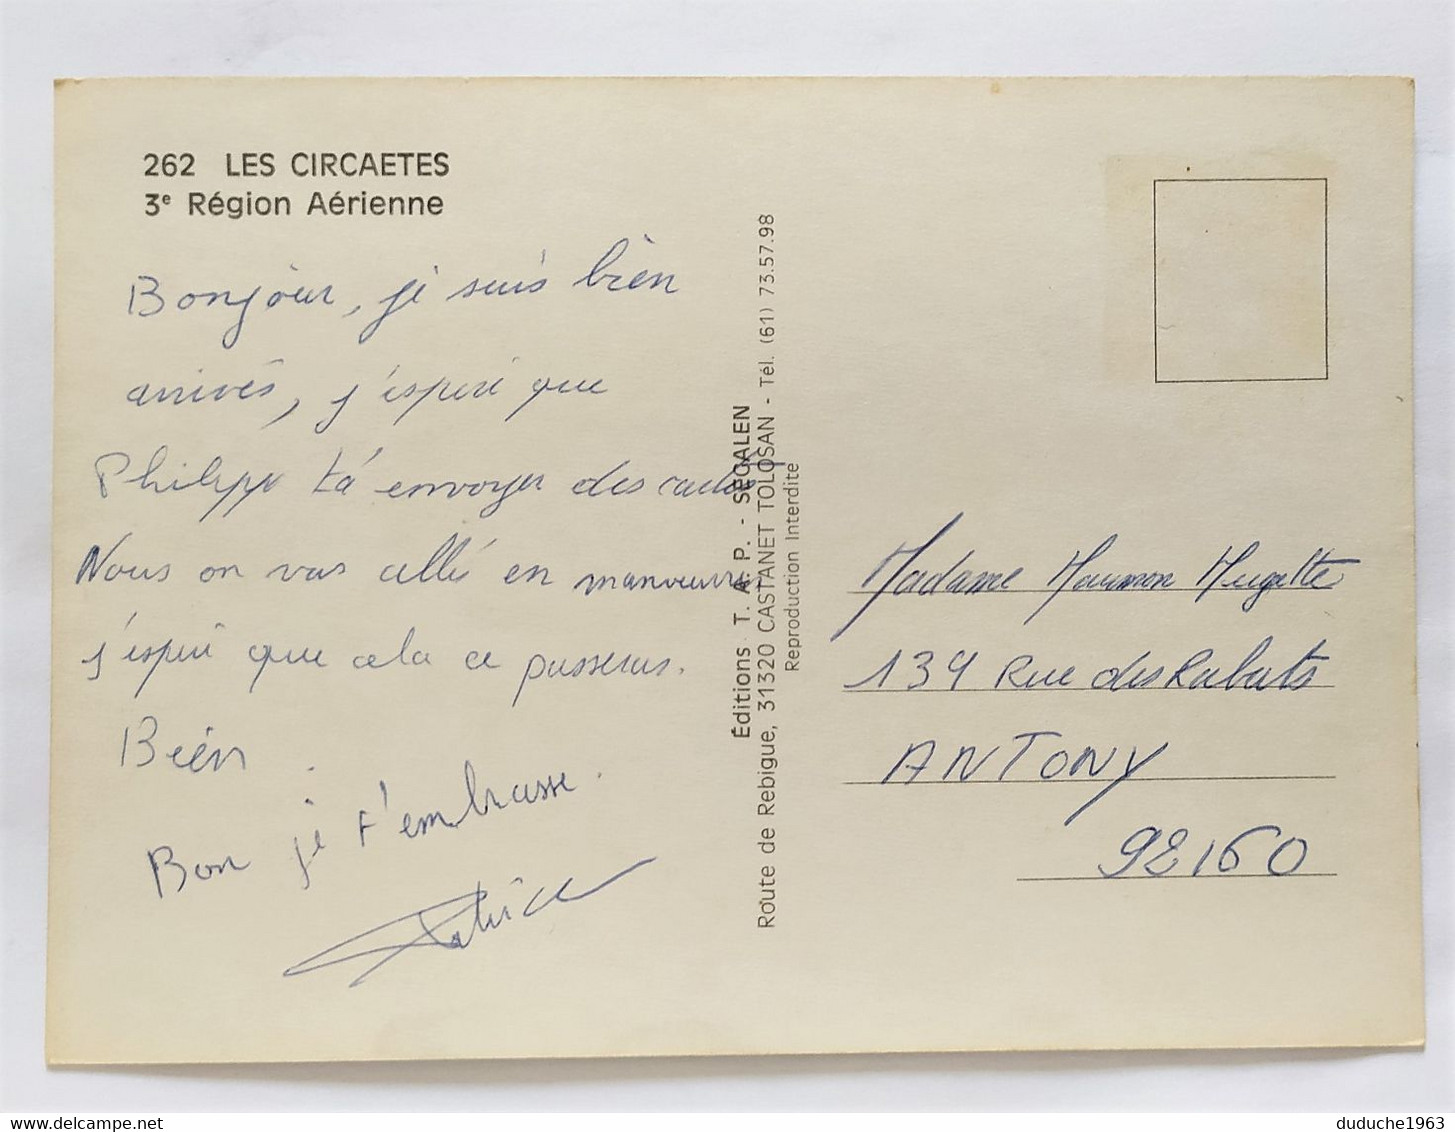 262 LES CIRCAETES
3e Région Aérienne
Bonjour, je suis bien
arrivés, j'esperé que
Philippe t'a envoyer des cartes
Nous on vas allés en manoeuvre
j'esperé que cela ce passeras.
Bien.
Bon je t'embrasse.
Patrice
Éditions T. A. P. - SEGALEN
Route de Rebigue, 31320 CASTANET TOLOSAN - Tél. (61) 73.57.98
Reproduction Interdite
Madame
139 Rue des Rabats
ANTONY
92160
delcampe.net
duduche1963